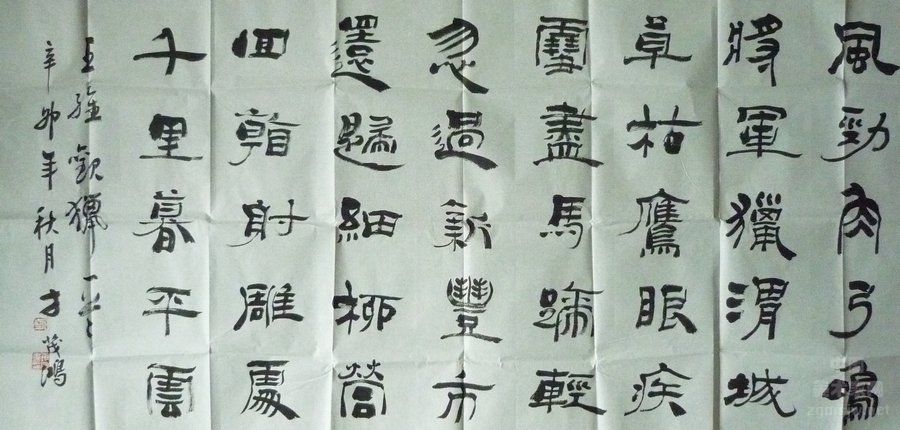 風勁角弓鳴
將軍獵渭城
草枯鷹眼疾
雪盡馬蹄輕
忽過新豐市
還歸細柳營
回看射雕處
千里暮平雲
王維觀獵一首
辛卯年秋月方茂鴻